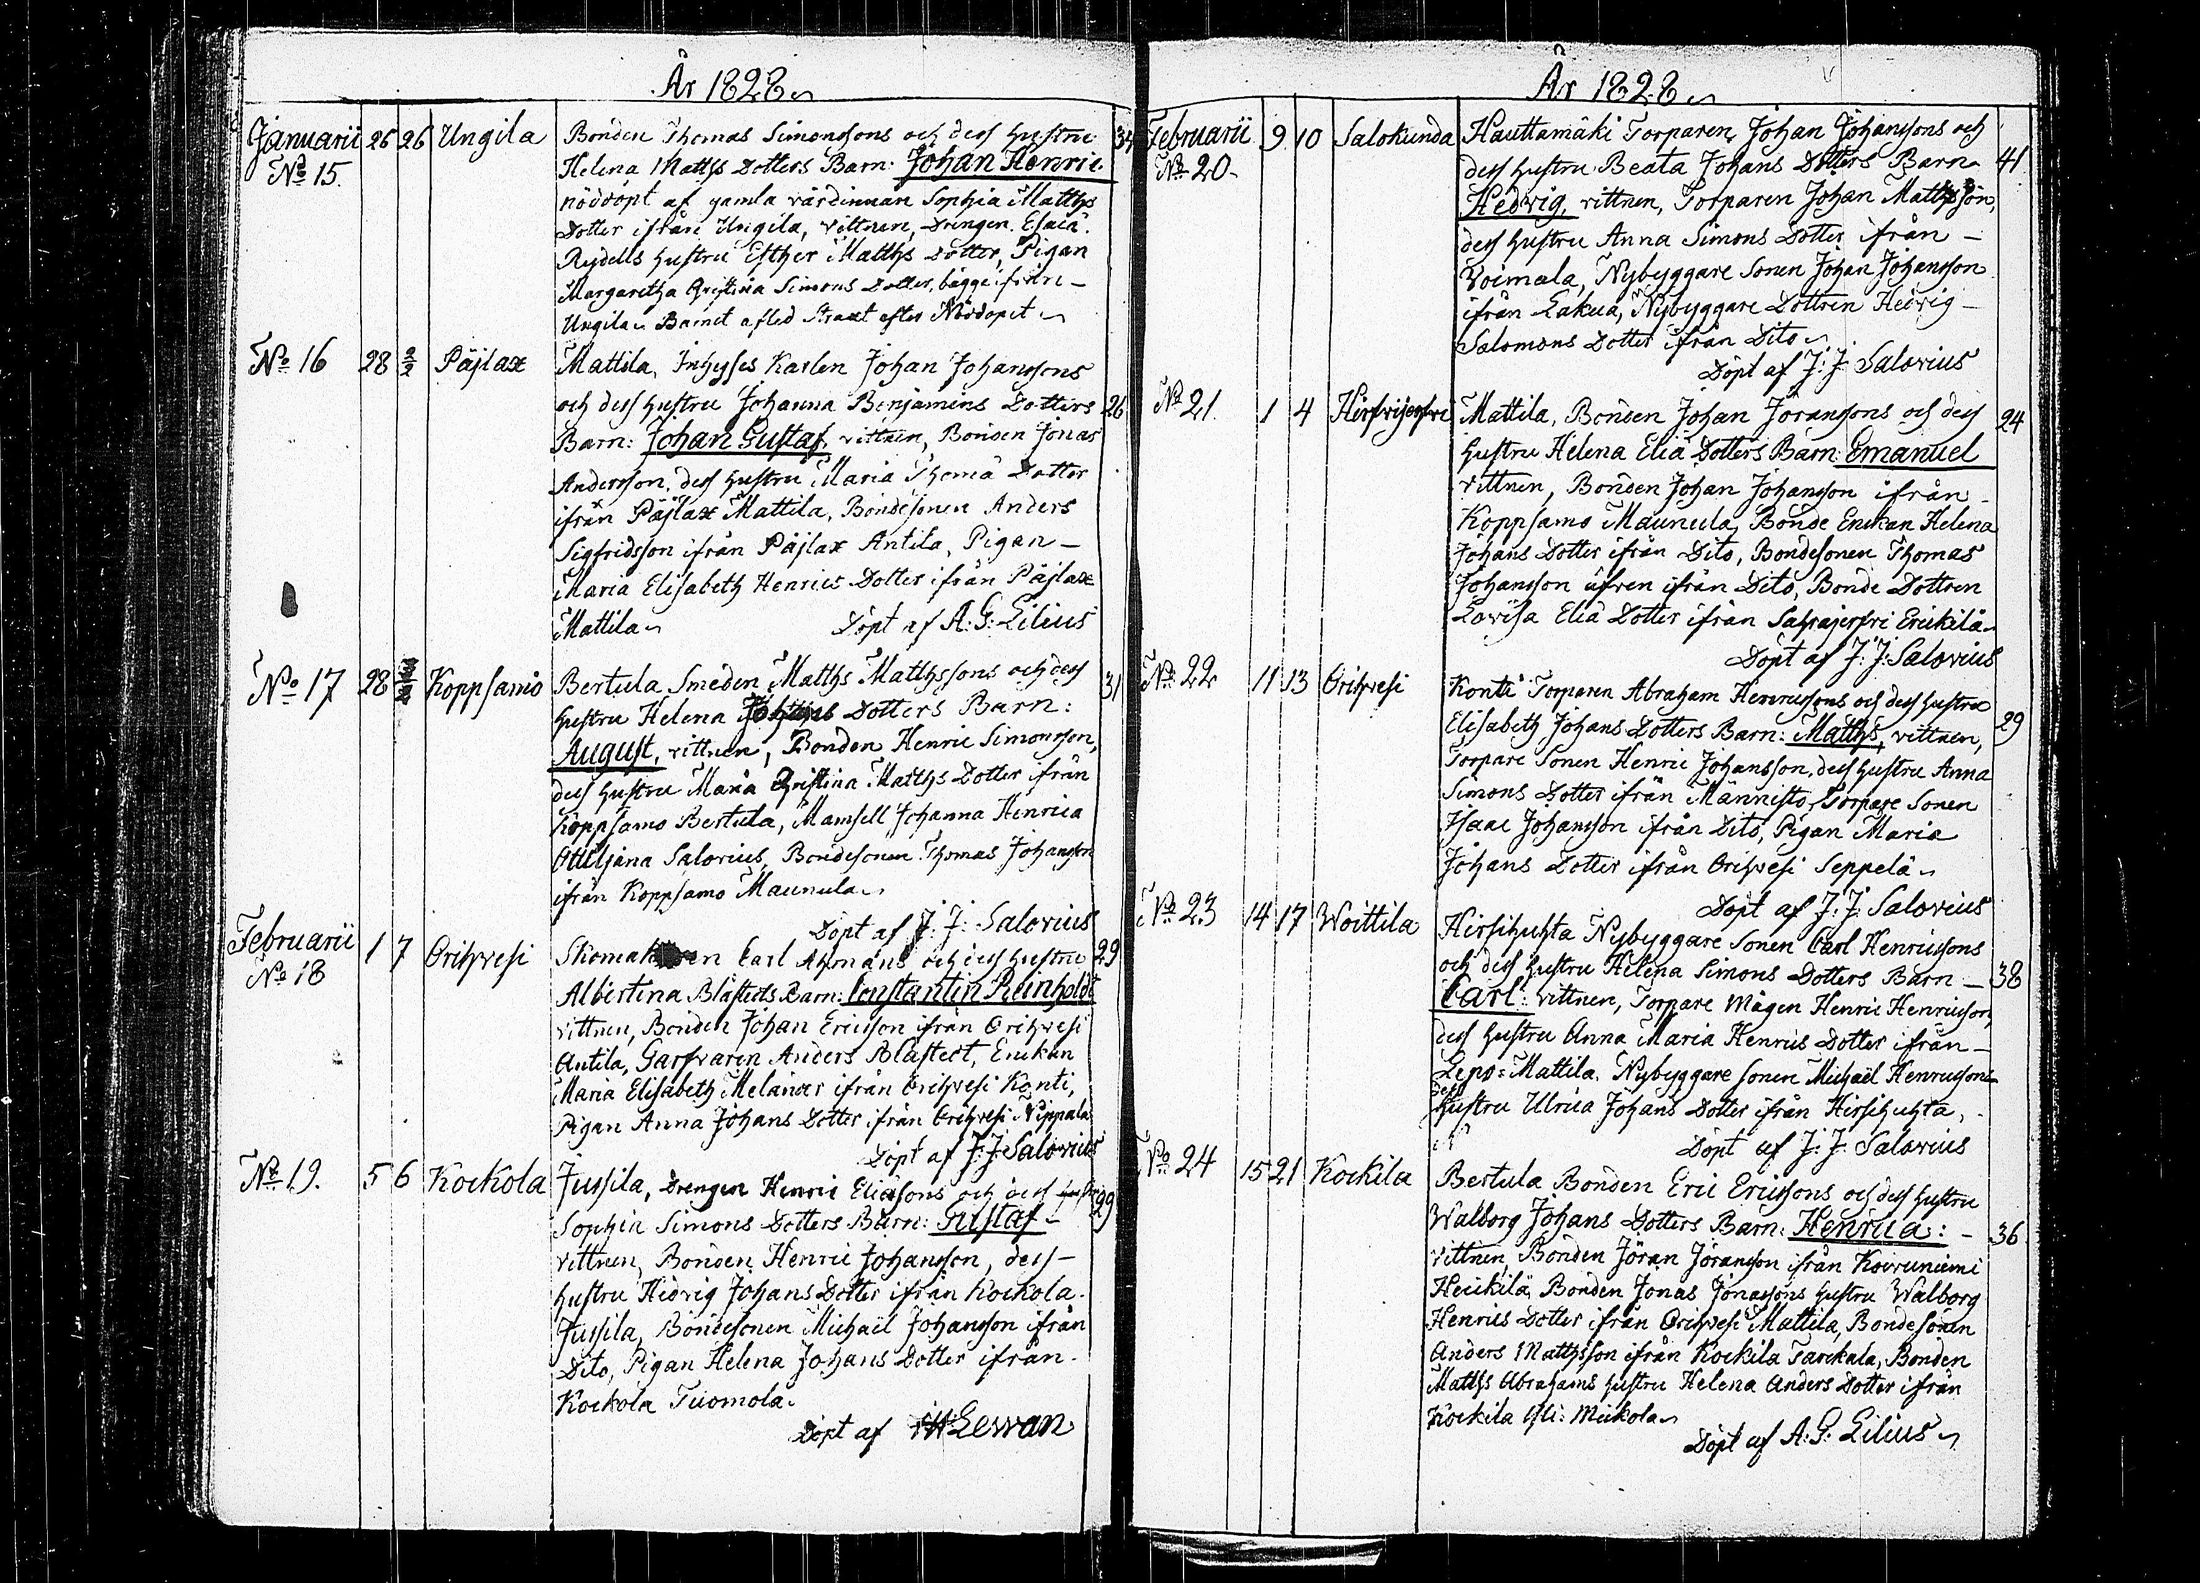 År 1828
Januarii 26 26 Ungila Bonden Thomas Simonssons och dess hustru 34
No 15. Helena Matths Dotters Barn: Johan Henric
nöddöpt af gamla värdinnan Sophia Matths
Dotter ifrån Ungila, vittnen, Drengen Esaiä
Rydells hustru Esther Matths Dotter, Pigan
Margaretha Christina Simons Dotter, bägge ifrån
Ungila. Barnet afled straxt efter Nöddopet
No 16 28 2/2 Päjlax Mattila, Inhyses Karlen Johan Johanssons
och dess hustru Johanna Benjamins Dotters 26
Barn: Johan Gustaf, vittnen, Bonden Jonas
Andersson, dess hustru Maria Thomä Dotter
ifrån Päjlax Mattila, Bondesonen Anders
Sigfridsson ifrån Päjlax Antila, Pigan
Maria Elisabeth Henrics Dotter ifrån Päjlax
Mattila Döpt af A: G: Lilius
No 17 28 Koppsamo Bertula Smeden Matths Matthssons och dess 31
hustru Helena Dotters Barn:
August, vittnen, Bonden Henric Simonsson,
dess hustru Maria Christina Matths Dotter ifrån
Koppsamo Bertula, Mamsell Johanna Henrica
Otteljana Salovius, Bondesonen Thomas Johansson
ifrån Koppsamo Maunula
Döpt af J: J: Salovius
Februarii 1 7 Orihvesi Carl Ahmans och dess hustru 29
No 18 Albertina Blåfielts Barn: Constantin Reinhold
vittnen, Bonden Johan Ericsson ifrån Orihvesi
Antila, Garfvaren Anders Enckan
Maria Elisabeth Melander ifrån Orihvesi Konti,
Pigan Anna Johans Dotter ifrån Orihvesi Nippala
Döpt af J: J: Salovius
No 19. 5 6 Kockola Jussila, Drengen Henric Eliäsons och dess hustru 29
Sophia Simons Dotters Barn: Gustaf
vittnen, Bonden Henric Johansson, dess
hustru Hedvig Johans Dotter ifrån Kockola
Jussila, Bondesonen Michaël Johansson ifrån
Dito, Pigan Helena Johans Dotter ifrån
Kockola Tuomola.
Döpt af Lewan
År 1828
Februarii 9 10 Salokunda Hauttamäki Torparen Johan Johanssons och
No 20 dess hustru Beata Johans Dotters Barn 41
Hedvig, vittnen, Torparen Johan Matthsson,
dess hustru Anna Simons Dotter ifrån
Voimala, Nybyggare Sonen Johan Johansson
ifrån Lakua, Nybyggare Dottren Hedvig
Salomons Dotter ifrån Dito
Döpt af J: J: Salovius
No 21. 1 4 Hirfvijerfvi Mattila, Bonden Johan Jöranssons och dess 24
hustru Helena Eliä Dotters Barn: Emanuel
vittnen, Bonden Johan Johansson ifrån
Koppsamo Maunula, Bonde Enckan Helena
Johans Dotter ifrån Dito, Bondesonen Thomas
Johansson äfven ifrån Dito, Bonde Dottren
Lovisa Eliä Dotter ifrån Sahrajerfvi Erickilä
Döpt af J: J: Salovius
No 22 11 13 Orihvesi Konti Torparen Abraham Henricssons och dess hustru
Elisabeth Johans Dotters Barn: Matths, vittnen, 29
Torpare Sonen Henric Johansson, dess hustru Anna
Simons Dotter ifrån Männisto, Torpare Sonen
Isaac Johansson ifrån Dito, Pigan Maria
Johans Dotter ifrån Orihvesi Seppelä
Döpt af J: J: Salovius
No 23 14 17 Woittila Hirsihuhta Nybyggare Sonen Carl Henricssons
och dess hustru Helena Simons Dotters Barn 38
Carl: vittnen, Torpare Mågen Henric Henricsson,
dess hustru Anna Maria Henrics Dotter ifrån
Lepo: Mattila, Nybyggare Sonen Michaël Henricssons
dess hustru Ulrica Johans Dotter ifrån Hirsihuhta,
Döpt af J: J: Salovius
No 24 15 21 Kockila Bertula Bonden Eric Ericssons och dess hustru
Walborg Johans Dotters Barn: Henrica: 36
vittnen, Bonden Jöran Jöransson ifrån Koivuniemi
Heickilä, Bonden Jonas Jonassons hustru Walborg
Henrics Dotter ifrån Orihvesi Mattila, Bondesonen
Anders Matthsson ifrån Kockila Tarckala, Bonden
Matths Abrahams hustru Helena Anders Dotter ifrån
Kockila Yli: Mickola
Döpt af A: G: Lilius